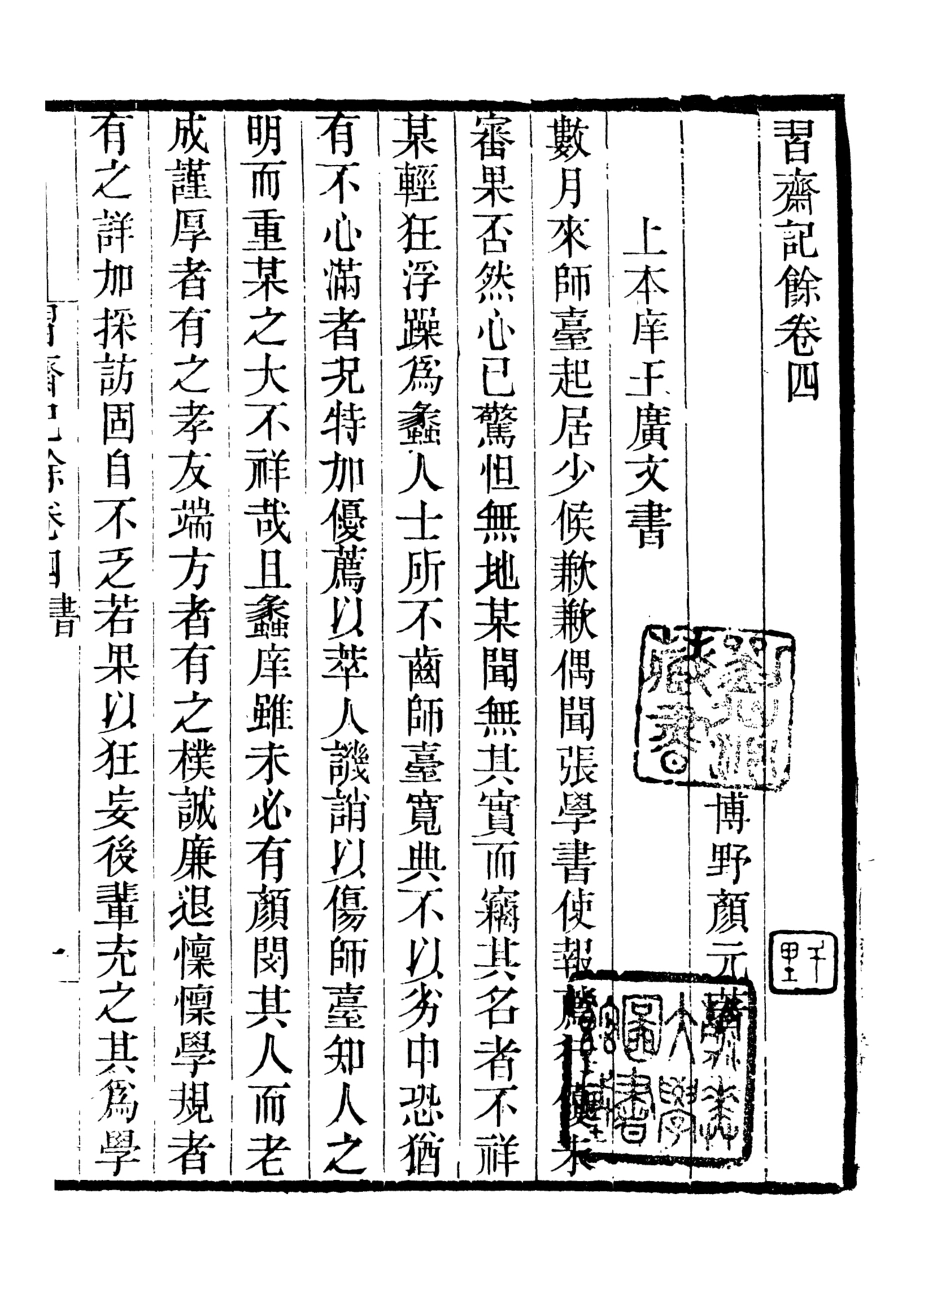 習齋記餘卷四
博野顏元著
上本庠王廣文書
數月來師臺起居少候歉歉偶聞張學書使報薦行優未
審果否然心已驚怛無地某聞無其實而竊其名者不祥
某輕狂浮躁爲蠡人士所不齒師臺寬典不以劣申恐猶
有不心滿者况特加優薦以萃人譏誚以傷師臺知人之
明而重某之大不祥哉且蠡庠雖未必有顏閔其人而老
成謹厚者有之孝友端方者有之樸誠廉退懍懍學規者
有之詳加採訪固自不乏若果以狂妄後輩充之其爲學
習齋記餘卷四書
一